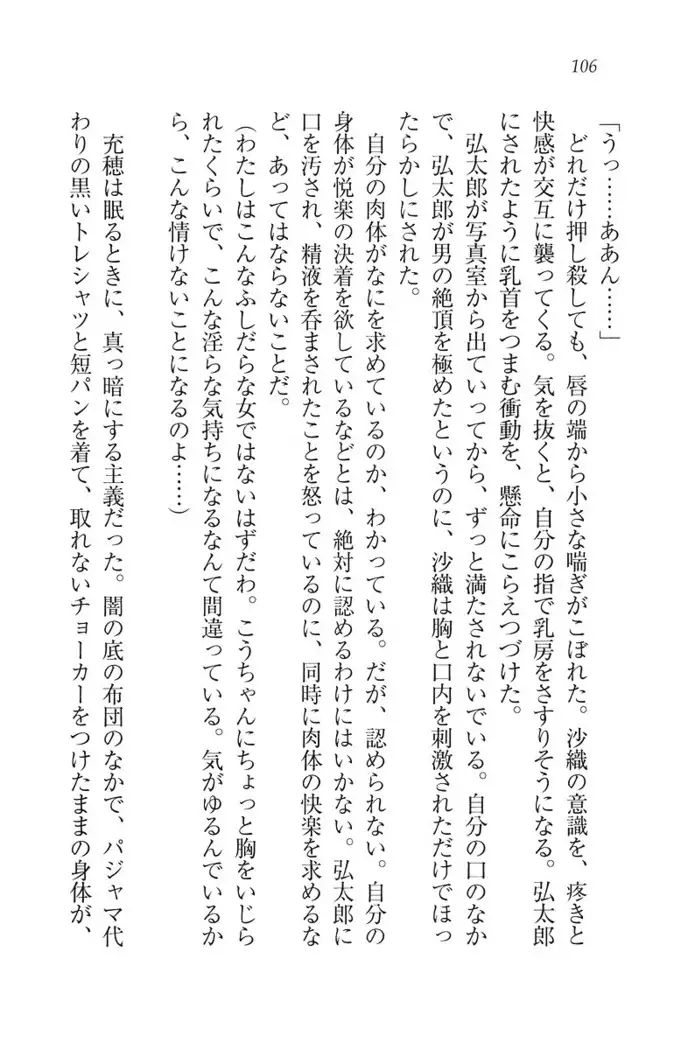 106
「うっ……ああん……」
どれだけ押し殺しても、唇の端から小さな喘ぎがこぼれた。沙織の意識を、疼きと
快感が交互に襲ってくる。気を抜くと、自分の指で乳房をさすりそうになる。弘太郎
にされたように乳首をつまむ衝動を、懸命にこらえつづけた。
弘太郎が写真室から出ていってから、ずっと満たされないでいる。自分の口のなか
で、弘太郎が男の絶頂を極めたというのに、沙織は胸と口内を刺激されただけでほっ
たらかしにされた。
自分の肉体がなにを求めているのか、わかっている。だが、認められない。自分の
身体が悦楽の決着を欲しているなどとは、絶対に認めるわけにはいかない。弘太郎に
口を汚され、精液を呑まされたことを怒っているのに、同時に肉体の快楽を求めるな
ど、あってはならないことだ。
（わたしはこんなふしだらな女ではないはずだわ。こうちゃんにちょっと胸をいじら
れたくらいで、こんな淫らな気持ちになるなんて間違っている。気がゆるんでいるか
ら、こんな情けないことになるのよ……）
充穂は眠るときに、真っ暗にする主義だった。闇の底の布団のなかで、パジャマ代
わりの黒いトレシャツと短パンを着て、取れないチョーカーをつけたままの身体が、